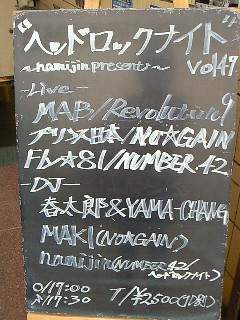 "ヘッドロックナイト"
〜namijin present〜 vol.49
-Live-
MAB/Revolution9
プリンス日本/NO★GAIN
Fレ★81/NUMBER42
-DJ-
春太郎&YAMA-CHANG
MAKI(NO★GAIN)
namijin(NUMBER42/
ヘッドロックナイト)
O/17:00
S/17:30 T/¥2500(1D別)